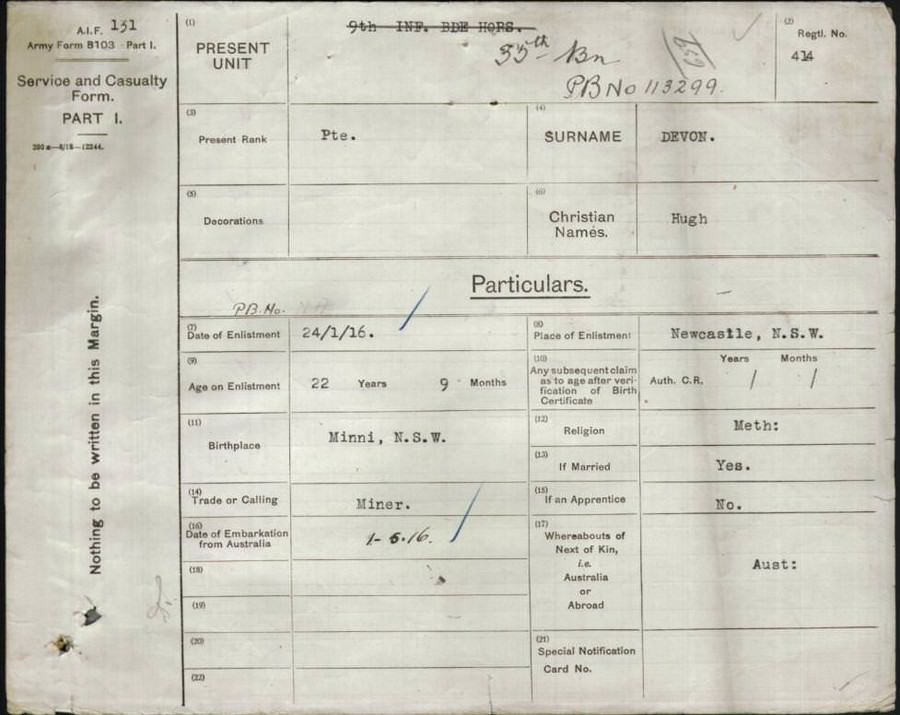 A.I.F. 151
Army Form B103 Part I.
Service and Casualty
Form.
PART I.
Nothing to be written in this Margin.
(1)
PRESENT
UNIT
9th INF. BDE HQRS.
35th Bn
PB No 113299.
(2)
Regtl. No.
414
(3)
Present Rank
Pte.
(4)
SURNAME
DEVON.
(5)
Decorations
(6)
Christian
Names.
Hugh
Particulars.
PB. No.
(7)
Date of Enlistment
24/1/16.
(8)
Place of Enlistment
Newcastle, N.S.W.
(9)
Age on Enlistment
22 Years 9 Months
(10)
Any subsequent claim
as to age after veri-
fication of Birth
Certificate
Years Months
Auth. C.R. / /
(11)
Birthplace
Minni, N.S.W.
(12)
Religion
Meth:
(13)
If Married
Yes.
(14)
Trade or Calling
Miner.
(15)
If an Apprentice
No.
(16)
Date of Embarkation
from Australia
1-5.16.
(17)
Whereabouts of
Next of Kin,
i.e.
Australia
or
Abroad
Aust:
(18)
(19)
(20)
(21)
Special Notification
Card No.
(22)